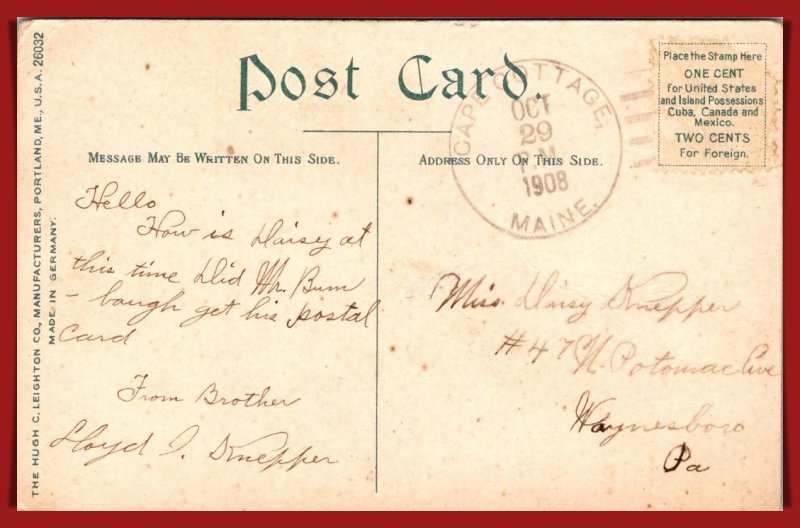 THE HUGH C. LEIGHTON CO., MANUFACTURERS, PORTLAND, ME., U.S.A. 26032
MADE IN GERMANY.
Post Card.
MESSAGE MAY BE WRITTEN ON THIS SIDE.
Hello
How is Daisy at
this time Did Mr. Bum
- baugh get his postal
Card
From Brother
Lloyd I. Knepper
ADDRESS ONLY ON THIS SIDE.
CAPE COTTAGE,
OCT
29
P.M.
1908
MAINE.
Place the Stamp Here
ONE CENT
for United States
and Island Possessions
Cuba, Canada and
Mexico.
TWO CENTS
For Foreign.
Miss. Daisy Knepper
#47 N. Potomac Ave
Waynesboro
Pa